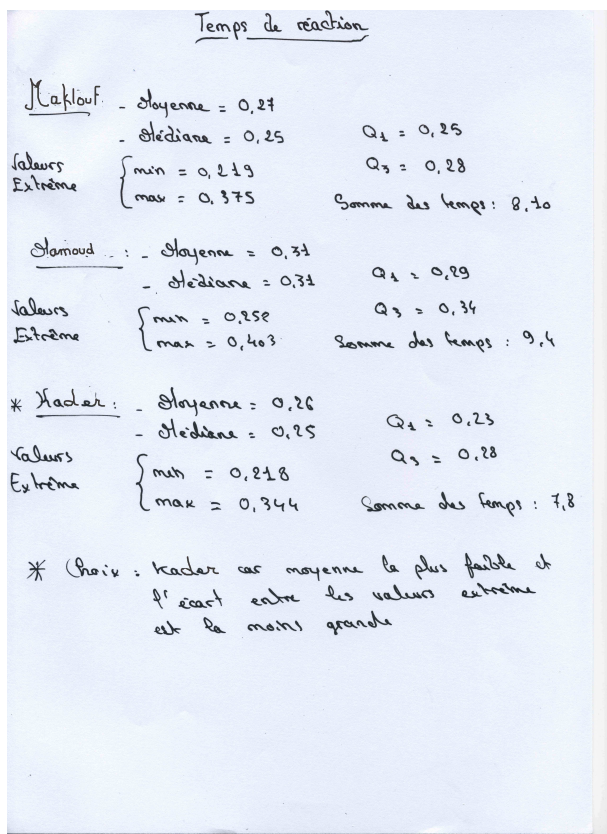 Temps de réaction
Maklouf - Moyenne = 0,27
- Médiane = 0,25 Q1 = 0,25
Valeurs Extrême { min = 0,219 Q3 = 0,28
max = 0,375 Somme des temps : 8,10
Hamoud : - Moyenne = 0,31
- Médiane = 0,31 Q1 = 0,29
Valeurs Extrême { min = 0,252 Q3 = 0,34
max = 0,403 Somme des temps : 9,4
* Kader : - Moyenne = 0,26 Q1 = 0,23
- Médiane = 0,25
Valeurs Extrême { min = 0,218 Q3 = 0,28
max = 0,344 Somme des temps : 7,8
* Choix : Kader car moyenne la plus faible et
l'écart entre les valeurs extrême
est la moins grande